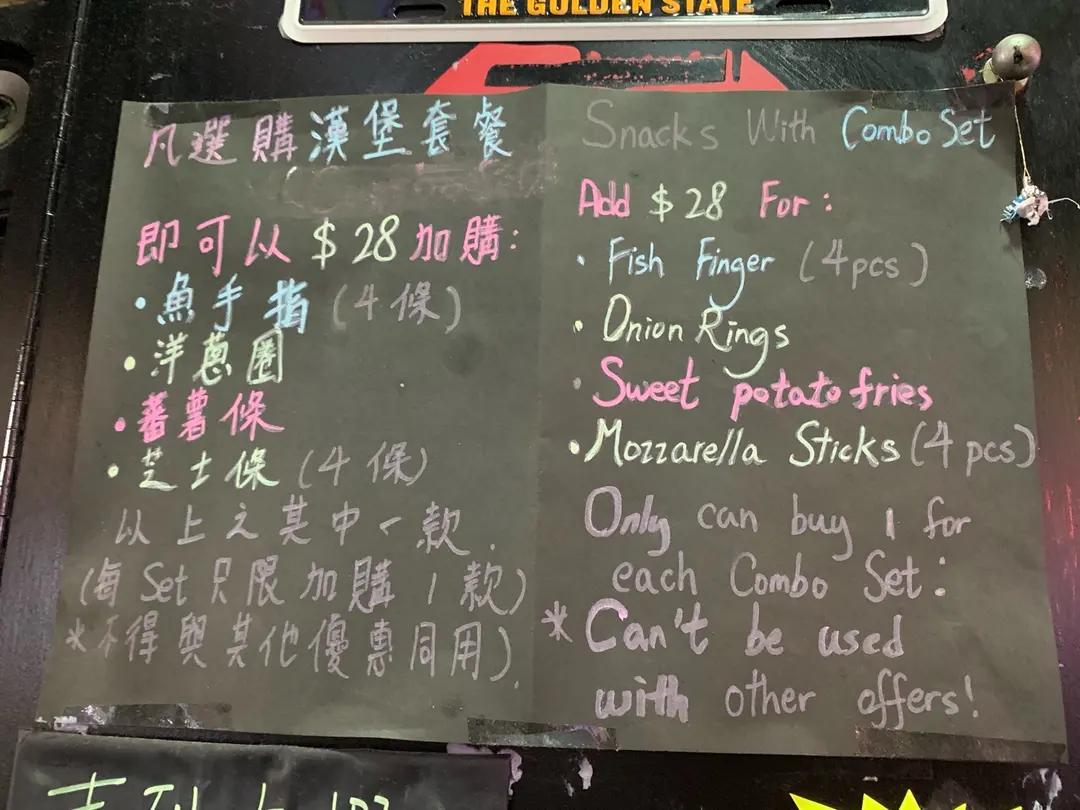 THE GOLDEN STATE
凡選購漢堡套餐
即可以$28加購:
·魚手指(4條)
·洋蔥圈
·蕃薯條
·芝士條(4條)
以上之其中一款.
(每Set只限加購1款)
*不得與其他優惠同用).
Snacks With Combo Set
Add $28 For:
· Fish Finger (4pcs)
· Onion Rings
· Sweet potato fries
· Mozzarella Sticks (4 pcs)
Only can buy 1 for
each Combo Set:
* Can't be used
with other offers!